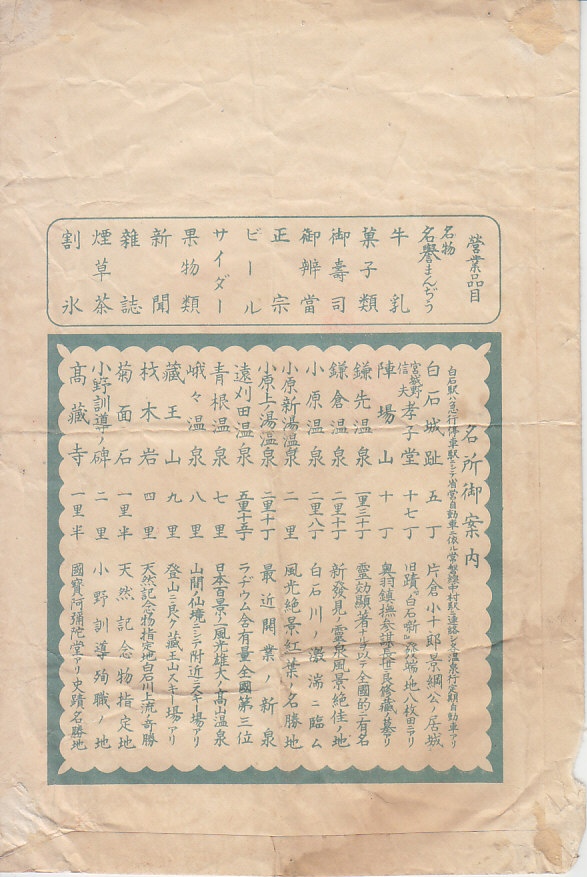 營業品目
名物
名譽まんぢう
牛乳
菓子類
御壽司
御辨當
正宗
ビール
サイダー
果物類
新聞
雜誌
煙草茶
割氷
名所御案内
白石駅ハ急行停車駅ニシテ省営自動車ニ依ル常磐線中村駅ニ連絡シ又温泉行定期自動車アリ
白石城趾 五丁 片倉小十郎景綱公ノ居城
宮城野信夫 孝子堂 十七丁 旧蹟「白石噺」ノ発端ノ地八枚田ニアリ
陣場山 十丁 奥羽鎮撫参謀長世良修藏ノ墓アリ
鎌先温泉 一里三十丁 霊効顯著ナルヲ以テ全國的ニ有名
鎌倉温泉 二里十丁 新發見ノ霊泉風景絶佳ノ地
小原温泉 二里八丁 白石川ノ激湍ニ臨ム
小原新湯温泉 二里 風光絶景紅葉ノ名勝地
小原上ノ湯温泉 二里十丁 最近開業ノ新泉
遠刈田温泉 五里十五丁 ラヂウム含有量全國第三位
青根温泉 七里 日本百景ノ一風光雄大ノ高山温泉
峨々温泉 八里 山間ノ仙境ニシテ附近ニスキー場アリ
藏王山 九里 登山ニ良ク藏王山スキー場アリ
材木岩 四里 天然記念物指定地白石川上流奇勝
菊面石 一里半 天然記念物指定地
小野訓導ノ碑 二里 小野訓導殉職ノ地
高藏寺 一里半 國寶阿彌陀堂アリ史蹟名勝地